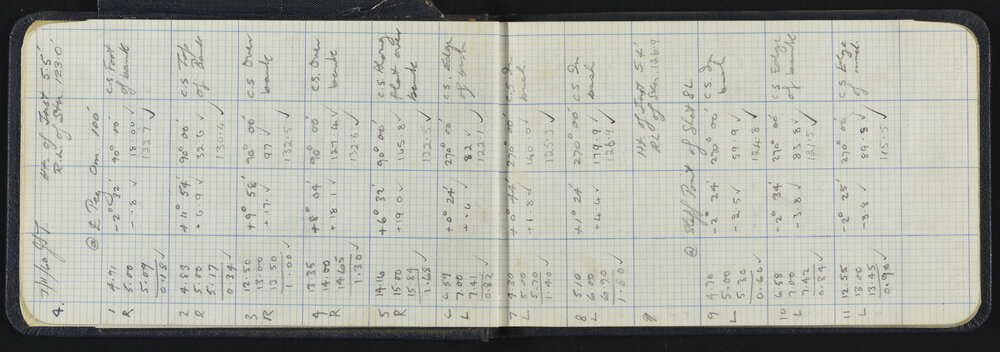 4. 7/11/60 Ht. of Inst 5.5'
R.L. of Stn. 123.0'
@ ₵ Peg Om. 100'
1 4.91 -2° 32' 90° 00' C.S. Foot
R 5.00 -.8 ✓ 18.00 ✓ of bank
5.09 122.9 ✓
0.18 ✓
2 4.83 +11° 54' 90° 00' C.S. Top
R 5.00 +6.9 ✓ 32.6 ✓ of Bank
5.17 130.4 ✓
0.34 ✓
3 12.50 +9° 58' 90° 00' C.S. Over
R 13.00 +17. ✓ 97 ✓ bank
13.50 132.5 ✓
1.00 ✓
4 13.35 +8° 04' 90° 00' C.S. Over
R 14.00 +18.1 ✓ 127.4 ✓ bank
14.65 132.6 ✓
1.30 ✓
5 14.16 +6° 32' 90° 00' C.S. Along
R 15.00 +19.0 ✓ 165.8 ✓ flat over
15.84 132.5 ✓ bank
1.68 ✓
6 6.59 +0° 24' 270° 00' C.S. Edge
L 7.00 +.6 ✓ 82 ✓ of bush
7.41 122.1 ✓
0.82 ✓
7 4.30 +0° 44' 270° 00' C.S. In
L 5.00 +1.8 ✓ 140.0 ✓ bush
5.70 125.3 ✓
1.40 ✓
8 5.10 +1° 24' 270° 00' C.S. In
L 6.00 +4.4 ✓ 179.9 ✓ bush
6.90 126.9 ✓
1.80 ✓
8 Ht of Inst 5.4'
R.L. of Stn 126.9
@ Staff Point of Shot 8L
9 4.70 -2° 24' 270° 00' C.S. In
L 5.00 -2.5 ✓ 59.9 ✓ bush
5.30 124.8 ✓
0.60 ✓
10 6.58 -2° 34' 270° 00' C.S. Edge
L 7.00 -3.8 ✓ 83.8 ✓ of bank
7.42 121.5 ✓
0.84 ✓
11 12.55 -2° 25' 270° 00' C.S. Edge
L 13.00 -3.8 ✓ 89.8 ✓ of mud.
13.45 115.5 ✓
0.90 ✓